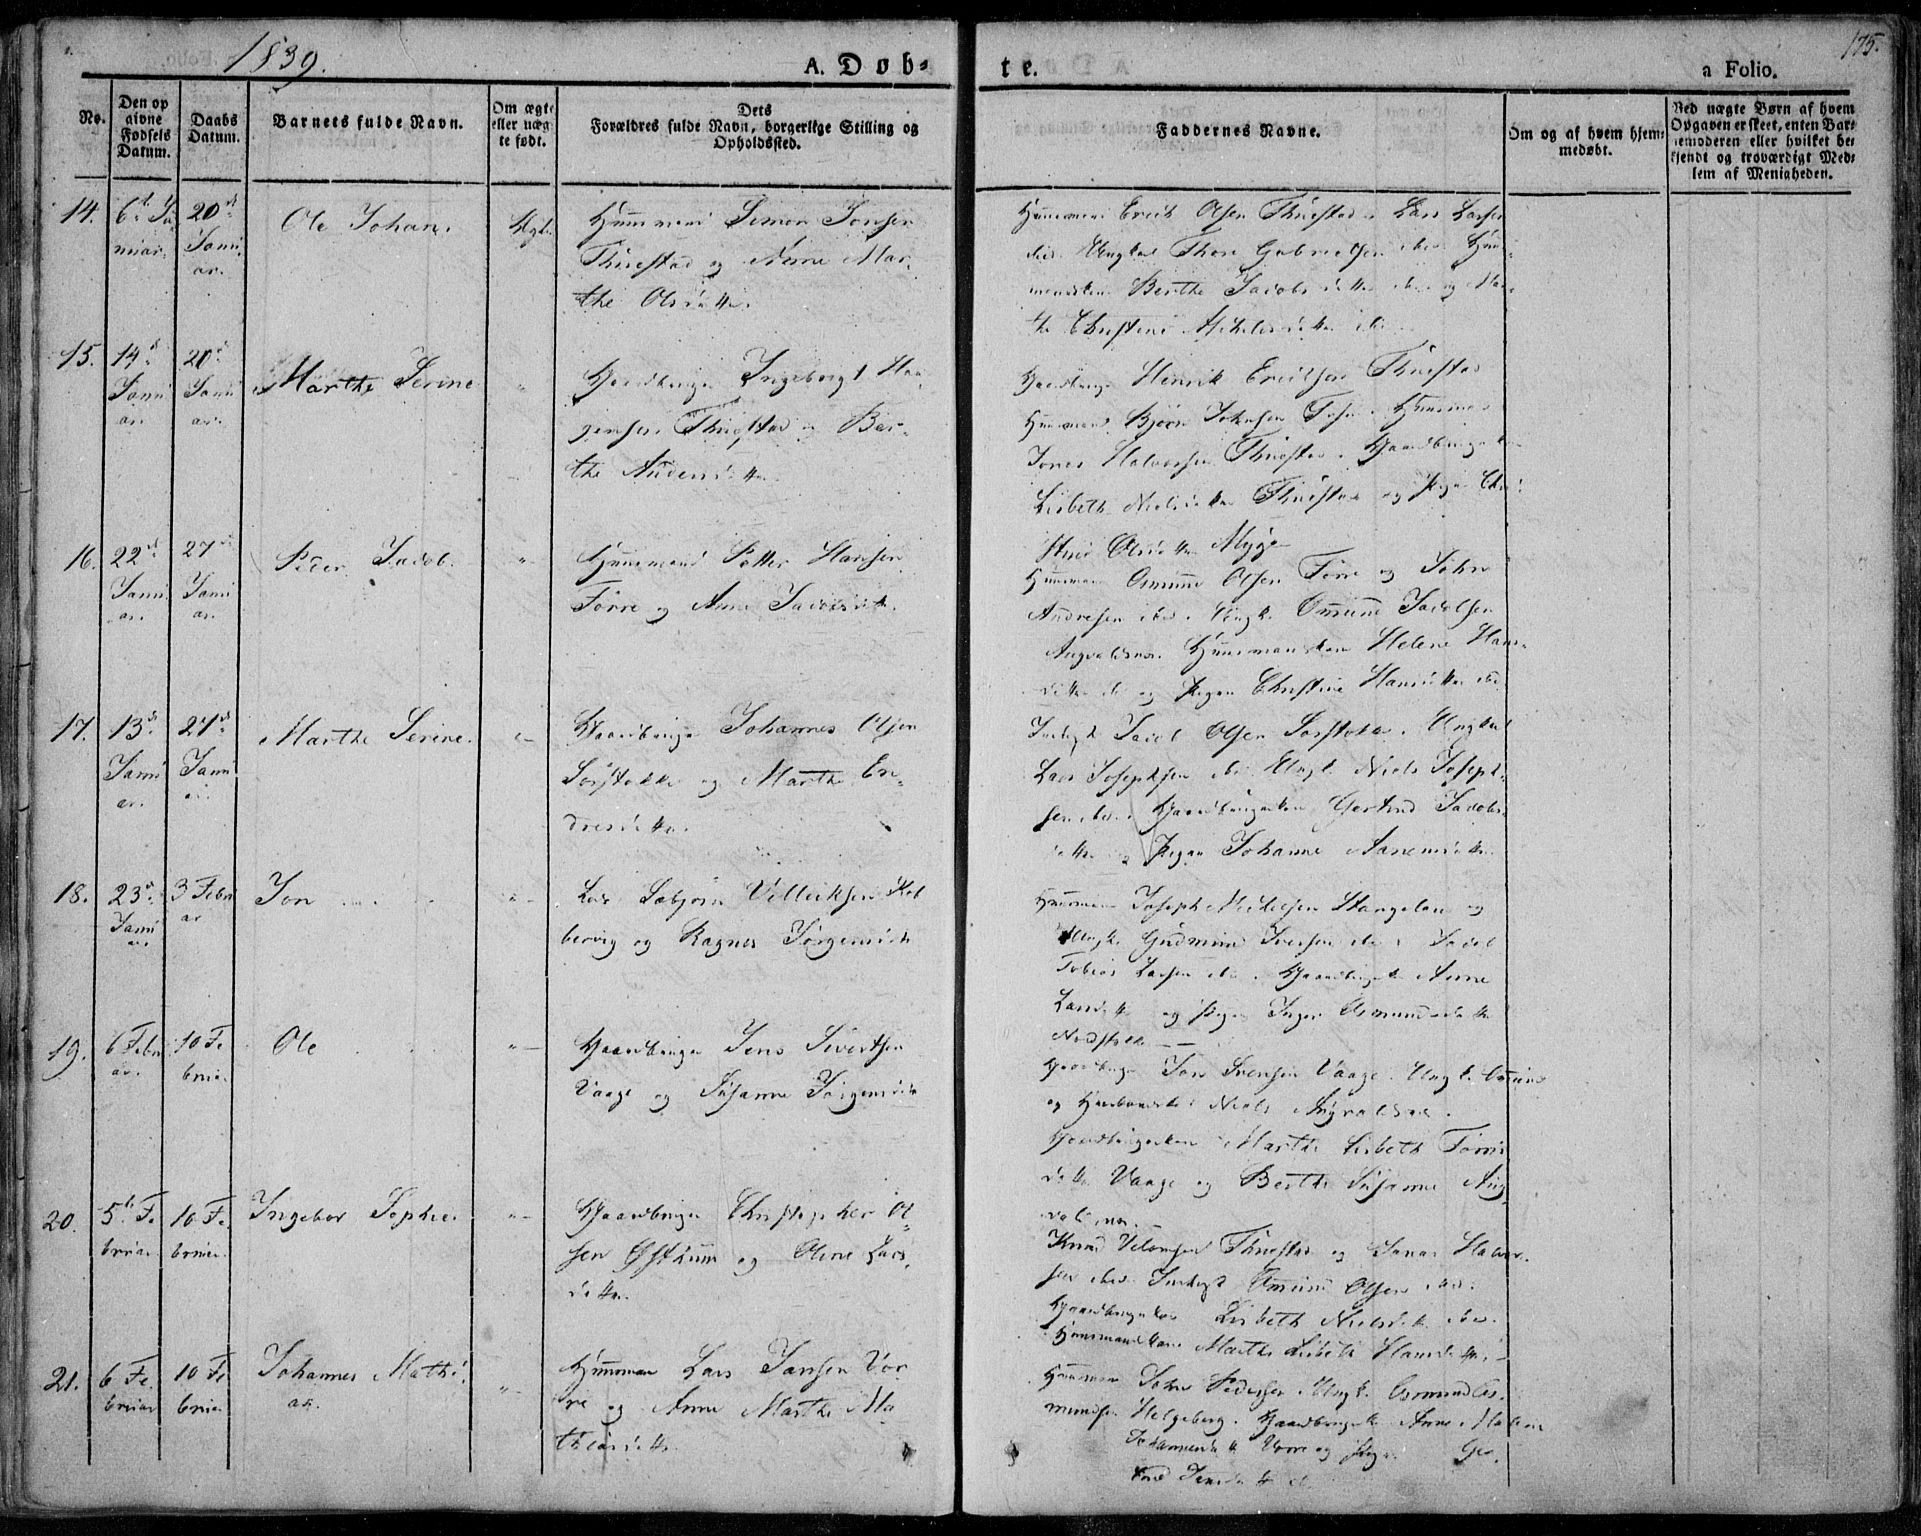 1839.
A. Døb-
te.
175.
a Folio.
No.
Den op
givne
Fødsels
Datum.
Daabs
Datum.
Barnets fulde Navn.
Om ægte
eller uæg
te født.
Dets
Forældres fulde Navn, borgerlige Stilling og
Opholdssted.
Faddernes Navne.
Om og af hvem hjem-
medøbt.
Ved uægte Børn af hvem
Opgaven er skeet, enten Bar-
nemoderen eller hvilket be-
kjendt og troværdigt Med-
lem af Menigheden.
14.
6t Ja
nuar.
20de
Janu
ar.
Ole Johan.
Ægte
Huusmand Simon Jonsen
Thuestad og Anne Mar-
the Olsdatter.
Huusmand Erich Olsen Thuestad. Lars Larsen
ibid. Ungkarl Thore Gabrielsen ibid. Huus-
Berthe Jacobsdatter ibid og Mar-
the Christine
15.
14d
Janu
ar.
20d
Janu
ar.
Marthe Serine
Gaardbruger Ingeborgt Haa-
gensen Thuestad og Ber-
the Andersdatter.
Gaardbruger Henrik Erichsen Thuestad
Huusmand Bjørn Johnsen
Jones Halvorsen Thuestad. Gaardbruger
Lisbeth Nielsdatter Thuestad og Pigen Chri-
stine Olsdatter Myge
16.
22d
Janu
ar.
27d
Janu
ar.
Peder Jacob.
Huusmand Petter Hansen
Førre og Anne Jacobsdatter.
Huusmand Osmund Olsen Førre og John
Andresen ibid. Ungk. Omund Jacobsen
Augvaldsnes. Huusmandskone Helene Hans-
datter ibid og Pigen Christine Hansdatter ibid
17.
13d
Janu
ar.
27d
Janu
ar.
Marthe Serine.
Gaardbruger Johannes Olsen
Sørstokke og Marthe En-
dresdatter.
Jacob Olsen Sørstokke. Ungkarl
Lars Josephsen ibid Ungk. Niels Joseph-
sen ibid. Gaardbrugerkone Gertrud Jacobs-
datter og Pigen Johanne
18.
23d
Janu
ar.
3 Febru
ar
Jon
Lods Asbjørn Villeiksen Kob
bervig og Ragnes Jørgensdatter
Huusmand Joseph Mikelsen Stangeland og
Ungk. Gudmund Iversen ibid. Jacob
Tobias Larsen ibid. Gaardbrugerk. Anne
Larsdatter og Pigen Inger Osmundsdatter
Nordstokke
19.
6 Febru
ar.
10 Fe
bruar.
Ole
Gaardbruger Jens Sivertsen
Vaage og Susanne Jørgensdatter
Gaardbruger Jon Svensen Vaage. Ungk.
og Niels Augvaldsnes.
Gaardbrugerkone Marthe Lisbeth Tormo
datter Vaage og Berthe Susanne Aug
valdsnes.
20.
5t Fe
bruar.
10 Fe
bruar.
Ingebor Sophie.
Gaardbruger Christopher Ol-
sen Østhuus og Oline Lars
datter.
Knud Thuestad og Jonas Halvor-
sen ibid. Omund Olsen ibid.
Gaardbrugerkone Lisbeth Nielsd. ibid.
Huusmandskone Marthe Lisbeth Hansdatter.
21.
6 Fe
bruar
10 Fe
bruar
Johannes Mathi
as.
Huusmand Lars Jansen Vor
re og Anne Marthe Ma
thiasdatter
Huusmand John Pedersen. Ungk. Osmund Os-
mundsen Helgeberg. Gaardbrugerk. Anne Malene
Johannesdatter Vorre og Pigen Ger